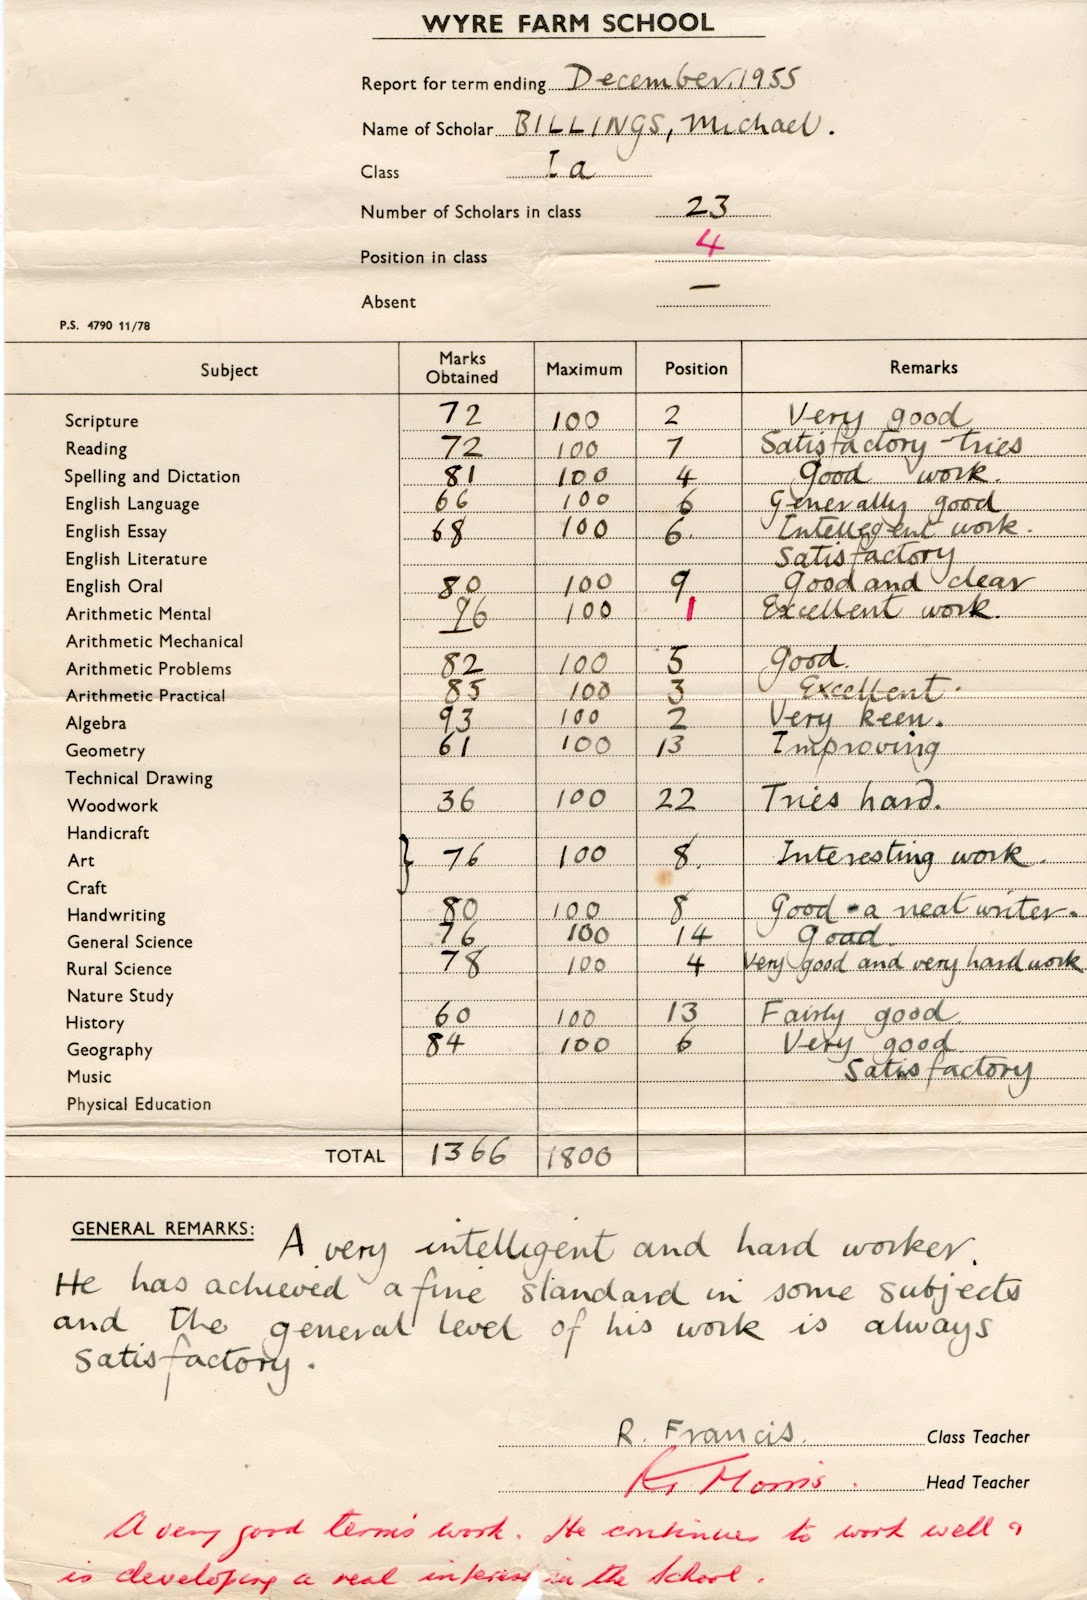 WYRE FARM SCHOOL
Report for term ending December. 1955
Name of Scholar BILLINGS, Michael.
Class Ia
Number of Scholars in class 23
Position in class 4
Absent —
P.S. 4790 11/78
Subject Marks Obtained Maximum Position Remarks
Scripture 72 100 2 Very good
Reading 72 100 7 Satisfactory - tries
Spelling and Dictation 81 100 4 Good work.
English Language 66 100 6 Generally good
English Essay 68 100 6. Intellegent work.
English Literature Satisfactory
English Oral 80 100 9 Good and clear
Arithmetic Mental 96 100 1 Excellent work.
Arithmetic Mechanical
Arithmetic Problems 82 100 5 Good.
Arithmetic Practical 85 100 3 Excellent.
Algebra 93 100 2 Very keen.
Geometry 61 100 13 Improving
Technical Drawing
Woodwork 36 100 22 Tries hard.
Handicraft
Art } 76 100 8. Interesting work.
Craft
Handwriting 80 100 8 Good - a neat writer.
General Science 76 100 14 Good.
Rural Science 78 100 4 Very good and very hard work
Nature Study
History 60 100 13 Fairly good
Geography 84 100 6 Very good
Music Satisfactory
Physical Education
TOTAL 1366 1800
GENERAL REMARKS: A very intelligent and hard worker.
He has achieved a fine standard in some subjects
and the general level of his work is always
satisfactory.
R. Francis. Class Teacher
Morris. Head Teacher
A very good term's work. He continues to work well &
is developing a real interest in the School.